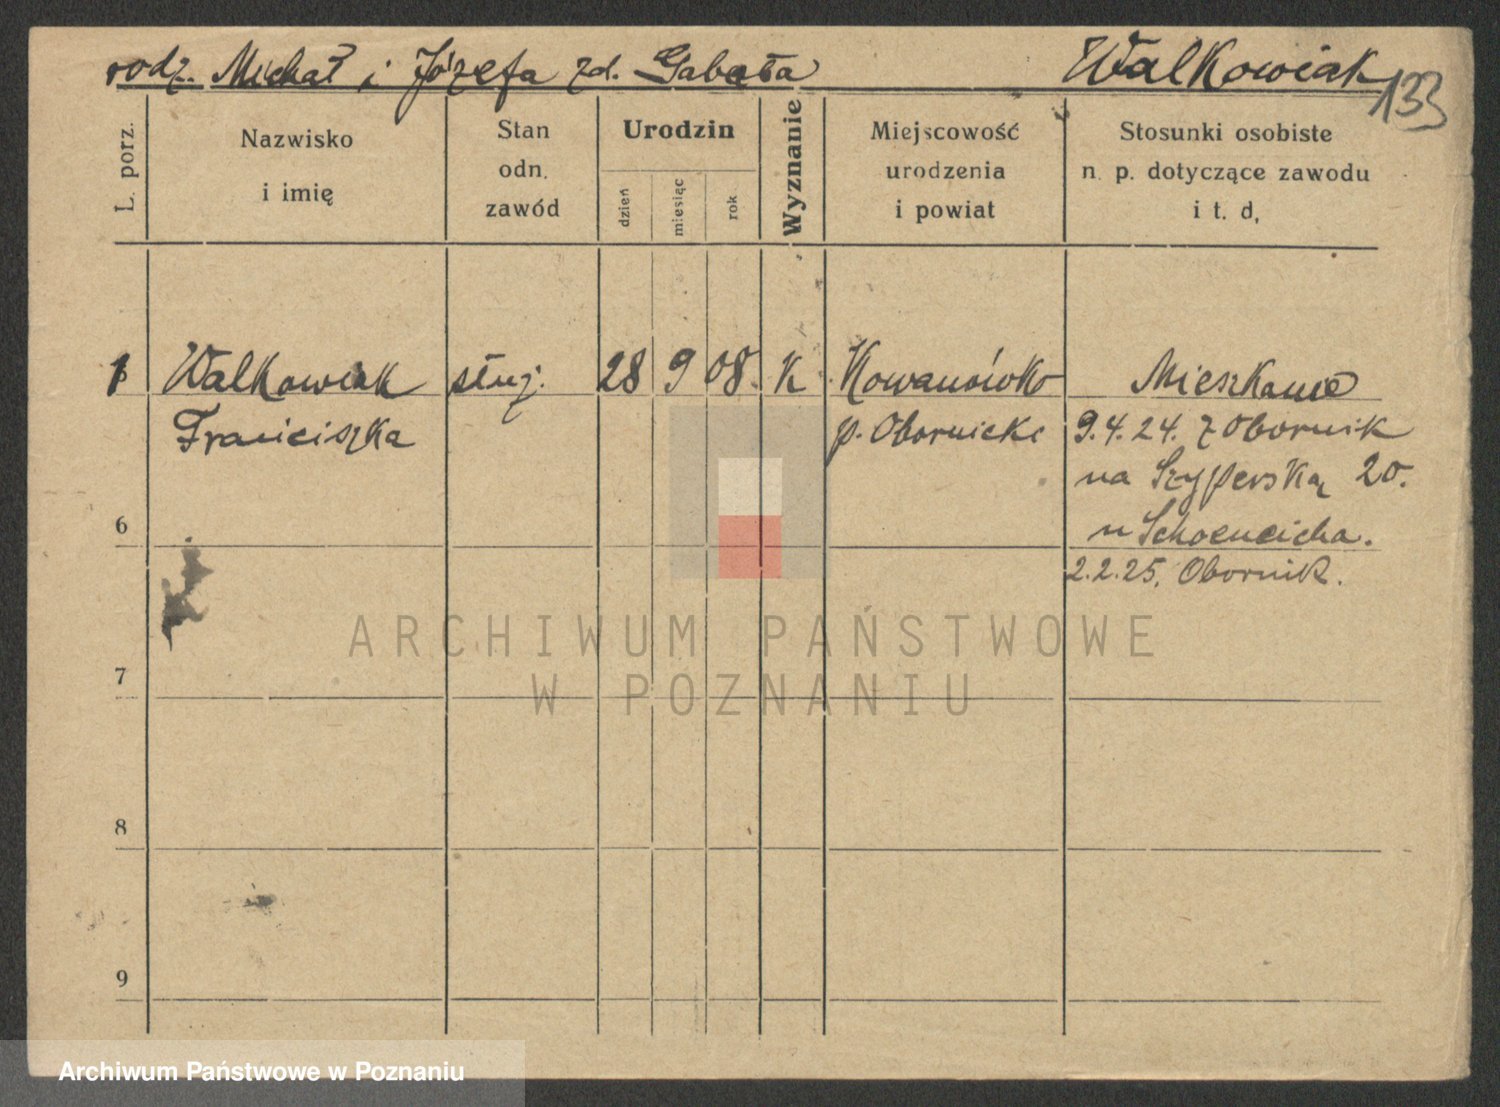 rodz. Michał i Józefa zd. Gabała
Walkowiak
133
L. porz.
Nazwisko
i imię
Stan
odn.
zawód
Urodzin
dzień
miesiąc
rok
Wyznanie
Miejscowość
urodzenia
i powiat
Stosunki osobiste
n. p. dotyczące zawodu
i t. d,
1 Walkowiak służ. 28 9 08. K Kowanówko Mieszkanie
Franciszka p. Obornicki 9.4.24. z Obornik
na Szyperską 20.
u Schoeneicha.
6
2.2.25. Obornik.
7
8
9
ARCHIWUM PAŃSTWOWE
W POZNANIU
Archiwum Państwowe w Poznaniu